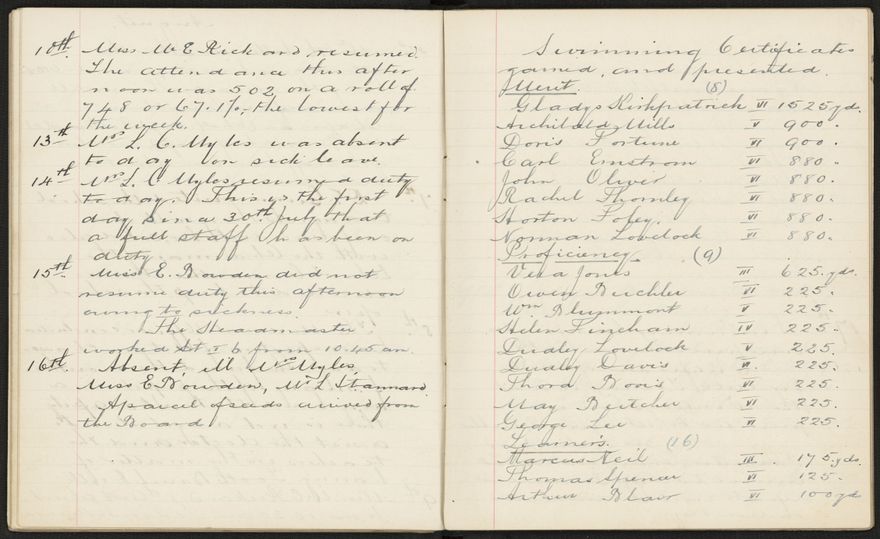 10th. Miss M E Rickard resumed.
The attendance this after
noon was 502 on a roll of
748 or 67.1%, the lowest for
the week.
13th Mrs L. C. Myles was absent
to day on sick leave.
14th Mrs L. C Myles resumed duty
to day. This is the first
day since 30th July that
a full staff has been on
duty.
15th. Miss E. Bowden did not
resume duty this afternoon
owing to sickness.
The Headmaster
worked St I b from 10.45 am
16th. Absent, Mrs Myles,
Miss E Bowden, Mr L Stannard.
A parcel of seeds arrived from
the Board
Swimming Certificates
gained, and presented.
Merit. (8)
Gladys Kirkpatrick VI 1525 yds.
Archibald Mills V 900.
Doris Fortune VI 900.
Carl Emstrom VI 880
John Oliver VI 880.
Rachel Thornley VI 880.
Horton Foley. VI 880.
Norman Lovelock VI 880.
Proficiency. (9)
Vera Jones III 625. yds.
Owen Beichler VI 225.
Wm Blummont V 225.
Helen Fincham IV 225.
Dudley Lovelock V 225.
Dudley Davis VI. 225.
Thora Bovis VI 225.
May Beitcher VI 225.
George Lee VI 225.
Learners. (16)
Marcus Neil III. 175. yds.
Thomas Spencer VI 125.
Arthur Blair VI 100 yds